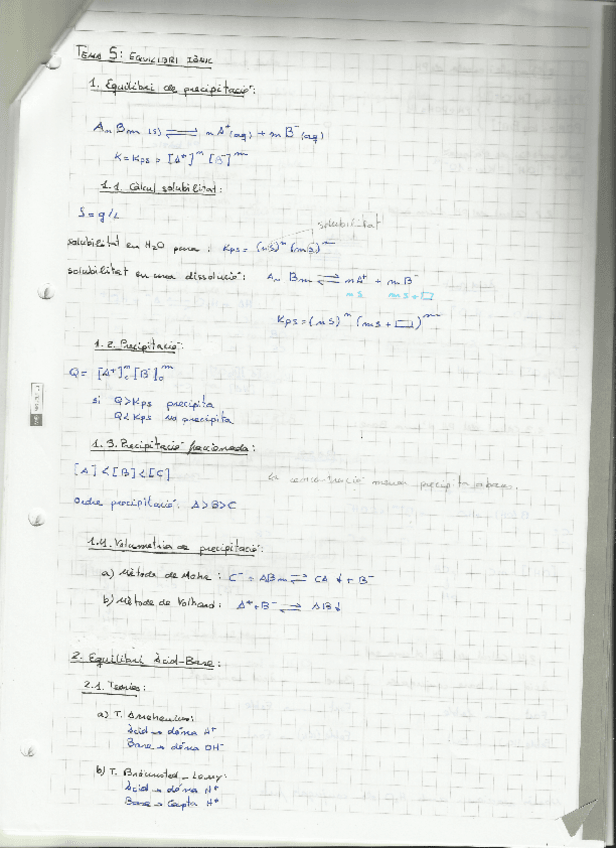 TEMA 5: EQUILIBRI IÒNIC
1. Equilibri de precipitació:
An Bm (s) ⇌ nA⁺(aq) + mB⁻(aq)
K = Kps = [A⁺]ⁿ [B⁻]ᵐ
1.1. Càlcul solubilitat:
S = g/L
solubilitat
solubilitat en H₂O pura: Kps = (nS)ⁿ (mS)ᵐ
solubilitat en una dissolució: An Bm ⇌ nA⁺ + mB⁻
nS mS+□
Kps = (nS)ⁿ (mS + □)ᵐ
1.2. Precipitació:
Q = [A⁺]₀ⁿ [B⁻]₀ᵐ
si Q > Kps precipita
Q < Kps no precipita
1.3. Precipitació fraccionada:
[A] < [B] < [C]
La concentració menor precipita abans.
Ordre precipitació: A > B > C
1.4. Volumetria de precipitació:
a) Mètode de Mohr: C⁻ = ABm ⇌ CA ↓ + B⁻
b) Mètode de Volhard: A⁺ + B⁻ ⇌ AB↓
2. Equilibri Àcid-Base:
2.1. Teories:
a) T. Arrhenius:
Àcid → dóna H⁺
Base → dóna OH⁻
b) T. Brönsted - Lowry:
Àcid → dóna H⁺
Base → Capta H⁺